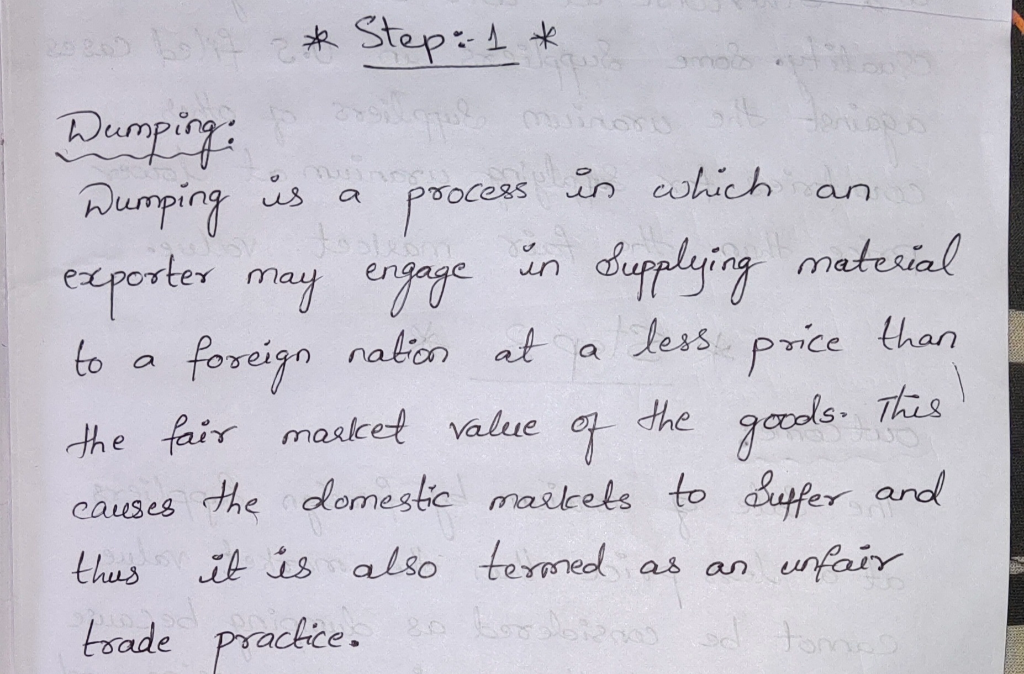 * Step:-1 *
Dumping:
Dumping is a process in which an
exporter may engage in Supplying material
to a foreign nation at a less price than
the fair market value of the goods. This
causes the domestic markets to Suffer and
thus it is also termed as an unfair
trade practice.